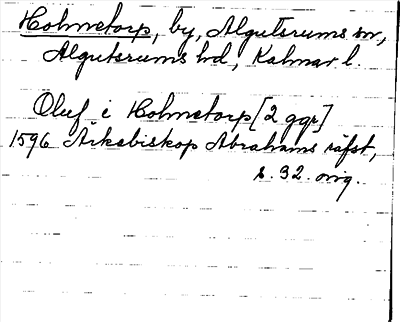 Holmetorp, by, Algutsrums sn,
Algutsrums hd, Kalmar l.
Oluf i Holmetorp [2 ggr]
1596 Ärkebiskop Abrahams räfst,
s. 32. orig.